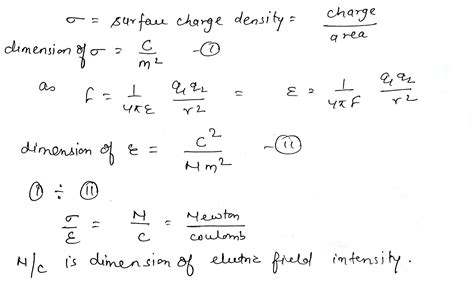 σ = surface charge density = charge / area
dimension of σ = C / m² - (i)
as F = 1 / 4πε q₁q₂ / r² = ε = 1 / 4πF q₁q₂ / r²
dimension of ε = C² / Nm² - (ii)
(i) ÷ (ii)
σ / ε = N / C = Newton / coulomb
N/C is dimension of electric field intensity.